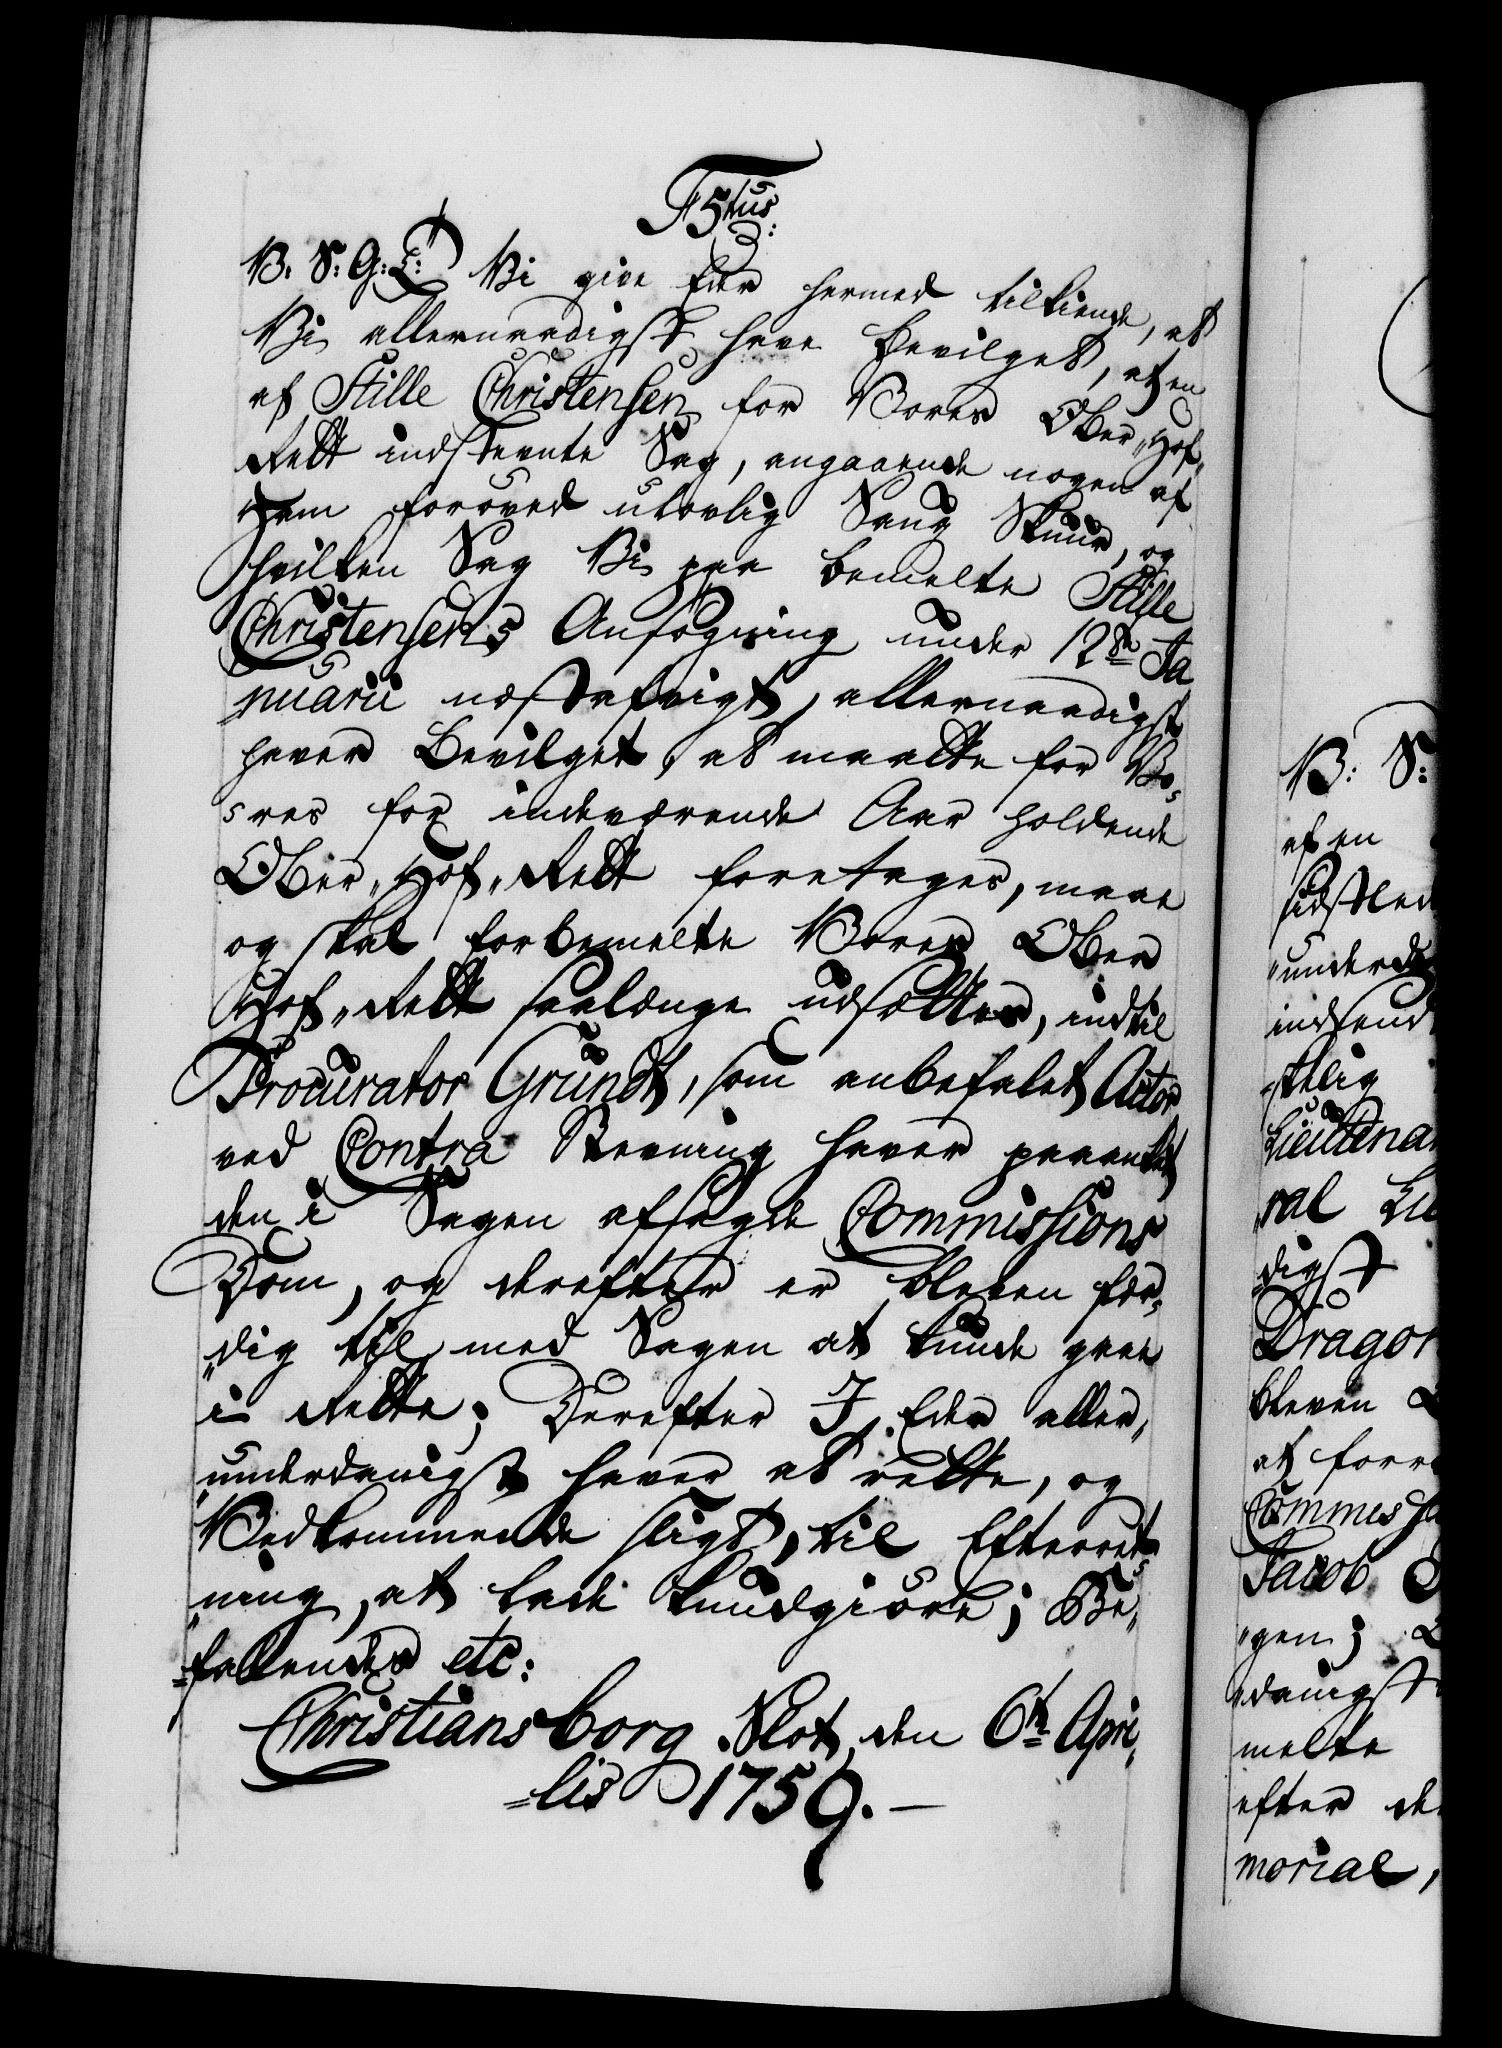 F 5tus:
V. S: G: T: Vi give Eder hermed tilkiende, at
Vi allernaadigst have bevilget, at en
af Stille Christensen for Vores Ober„Hof„
Rett indstevnte Sag, angaaende nogen af
ham forøved ulovlig Saug Skuur, og
hvilken Sag Vi paa bemelte Stille
Christensens Ansøgning under 12te Ja
nuarii nestafvigt, allernaadigst
haver bevilget, at maatte for Vo„
„res for indeværende Aar holdende
Ober„Hof„Rett foretages, maae
og skal forbemelte Vores Ober
Hof„Rett saalænge udsættes, indtil
Procurator Grundt, som anbefalet Actor
ved Contra Stevning haver paaanket
den i Sagen afsagde Commissions
Dom, og derefter er bleven fær„
„dig til med Sagen at kunde gaae
i Rette; Derefter I Eder aller„
„underdanigst haver at rette, og
Vedkommende sligt, til Efterret„
„ning, at lade kundgiøre; Be„
„fallendes etc:
Christiansborg Slot, den 6te Apri„
„lis 1759.
V: S:
af en
sidstled
„underd
indsend
„stelig
Lieutena
ral Lie
digst
Dragon
bleven
at forr
Commissa
Jacob
„gen;
„danigst
melte
efter de
morial,